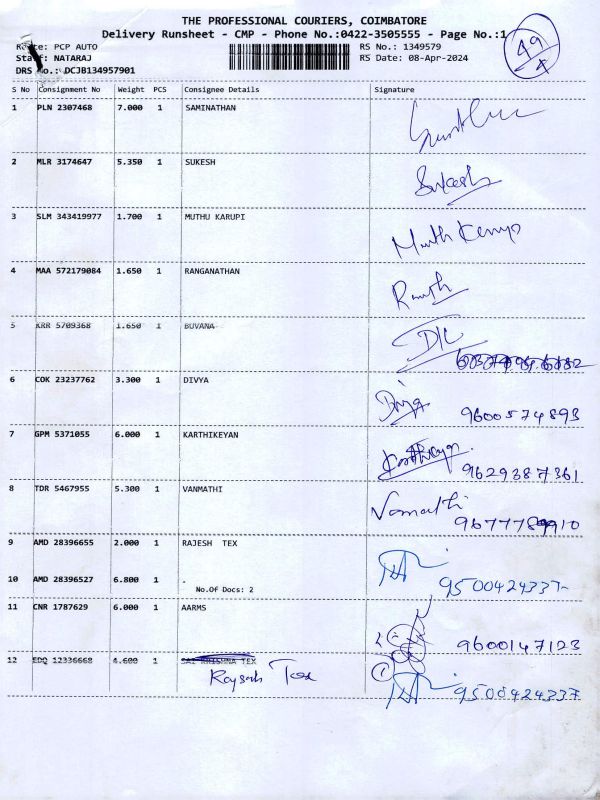 THE PROFESSIONAL COURIERS, COIMBATORE
Delivery Runsheet - CMP - Phone No.:0422-3505555 - Page No.:1
49/4
Route: PCP AUTO
RS No.: 1349579
Staff: NATARAJ
RS Date: 08-Apr-2024
DRS No.: DCJB134957901
S No Consignment No Weight PCS Consignee Details Signature
1 PLN 2307468 7.000 1 SAMINATHAN
2 MLR 3174647 5.350 1 SUKESH
Sukesh
3 SLM 343419977 1.700 1 MUTHU KARUPI
4 MAA 572179084 1.650 1 RANGANATHAN
5 KRR 5709368 1.650 1 BUVANA
6 COK 23237762 3.300 1 DIVYA
Divya
9600574893
7 GPM 5371055 6.000 1 KARTHIKEYAN
Karthikeyan
9629387361
8 TDR 5467955 5.300 1 VANMATHI
Vanmathi
9 AMD 28396655 2.000 1 RAJESH TEX
10 AMD 28396527 6.800 1 .
No.Of Docs: 2
9500424337
11 CNR 1787629 6.000 1 AARMS
9600147123
12 EDQ 12336668 4.600 1 SAI KRISHNA TEX
Rajesh Tex
9500424337